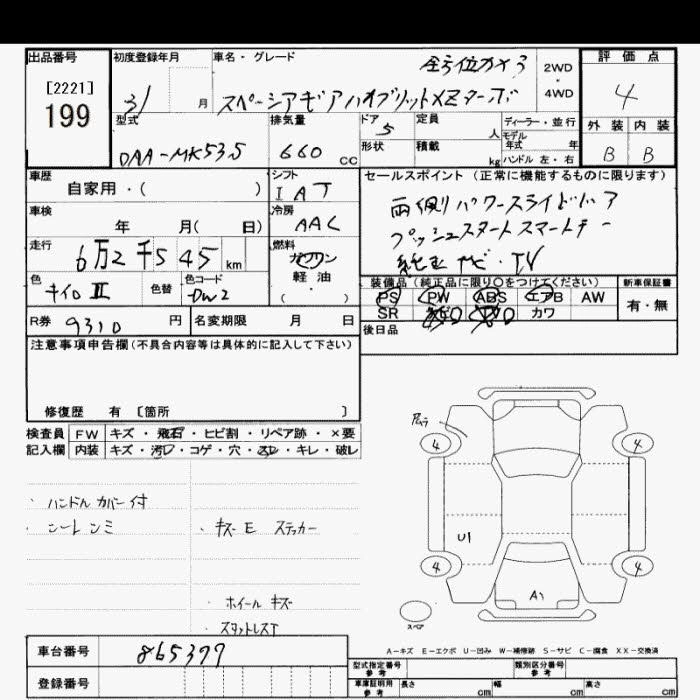 出品番号
[2221]
199
初度登録年月
31 月
車名・グレード
全方位カメラ
スペーシアギア ハイブリットXZターボ
2WD
4WD
評価点
4
外装 内装
B B
型式
DAA-MK53S
排気量
660 cc
ドア
5
定員
人
形状
積載
kg
ディーラー・並行
モデル
年式 年
ハンドル 左・右
車歴
自家用・( )
シフト
IAT
車検
年 月( 日)
冷房
AAC
走行
6万2千545 km
燃料
ガソリン
軽・油
( )
色
キイロII
色替
色コード
DW2
R券 9310 円
名変期限 月 日
セールスポイント(正常に機能するものに限ります)
両側パワースライドドア
プッシュスタートスマートキー
純正ナビ・TV
装備品(純正品に限り○をつけてください)
PS PW ABS エアB AW
SR ナビ TV カワ
新車保証書
有・無
後日品
注意事項申告欄(不具合内容等は具体的に記入して下さい)
修復歴 有 〔箇所 〕
検査員 FW キズ・飛石・ヒビ割・リペア跡・×要
記入欄 内装 キズ・汚レ・コゲ・穴・スレ・キレ・破レ
・ハンドルカバー付
・シートシミ
・キズE ステッカー
・ホイールキズ
・スタットレスT
4 4
U1
4 4
A1
スペア
A-キズ E-エクボ U-凹み W-補修跡 S-サビ C-腐食 XX-交換済
車台番号 865377
登録番号
型式指定番号
参考
類別区分番号
参考
車庫証明用
参考
長さ cm 幅 cm 高さ cm